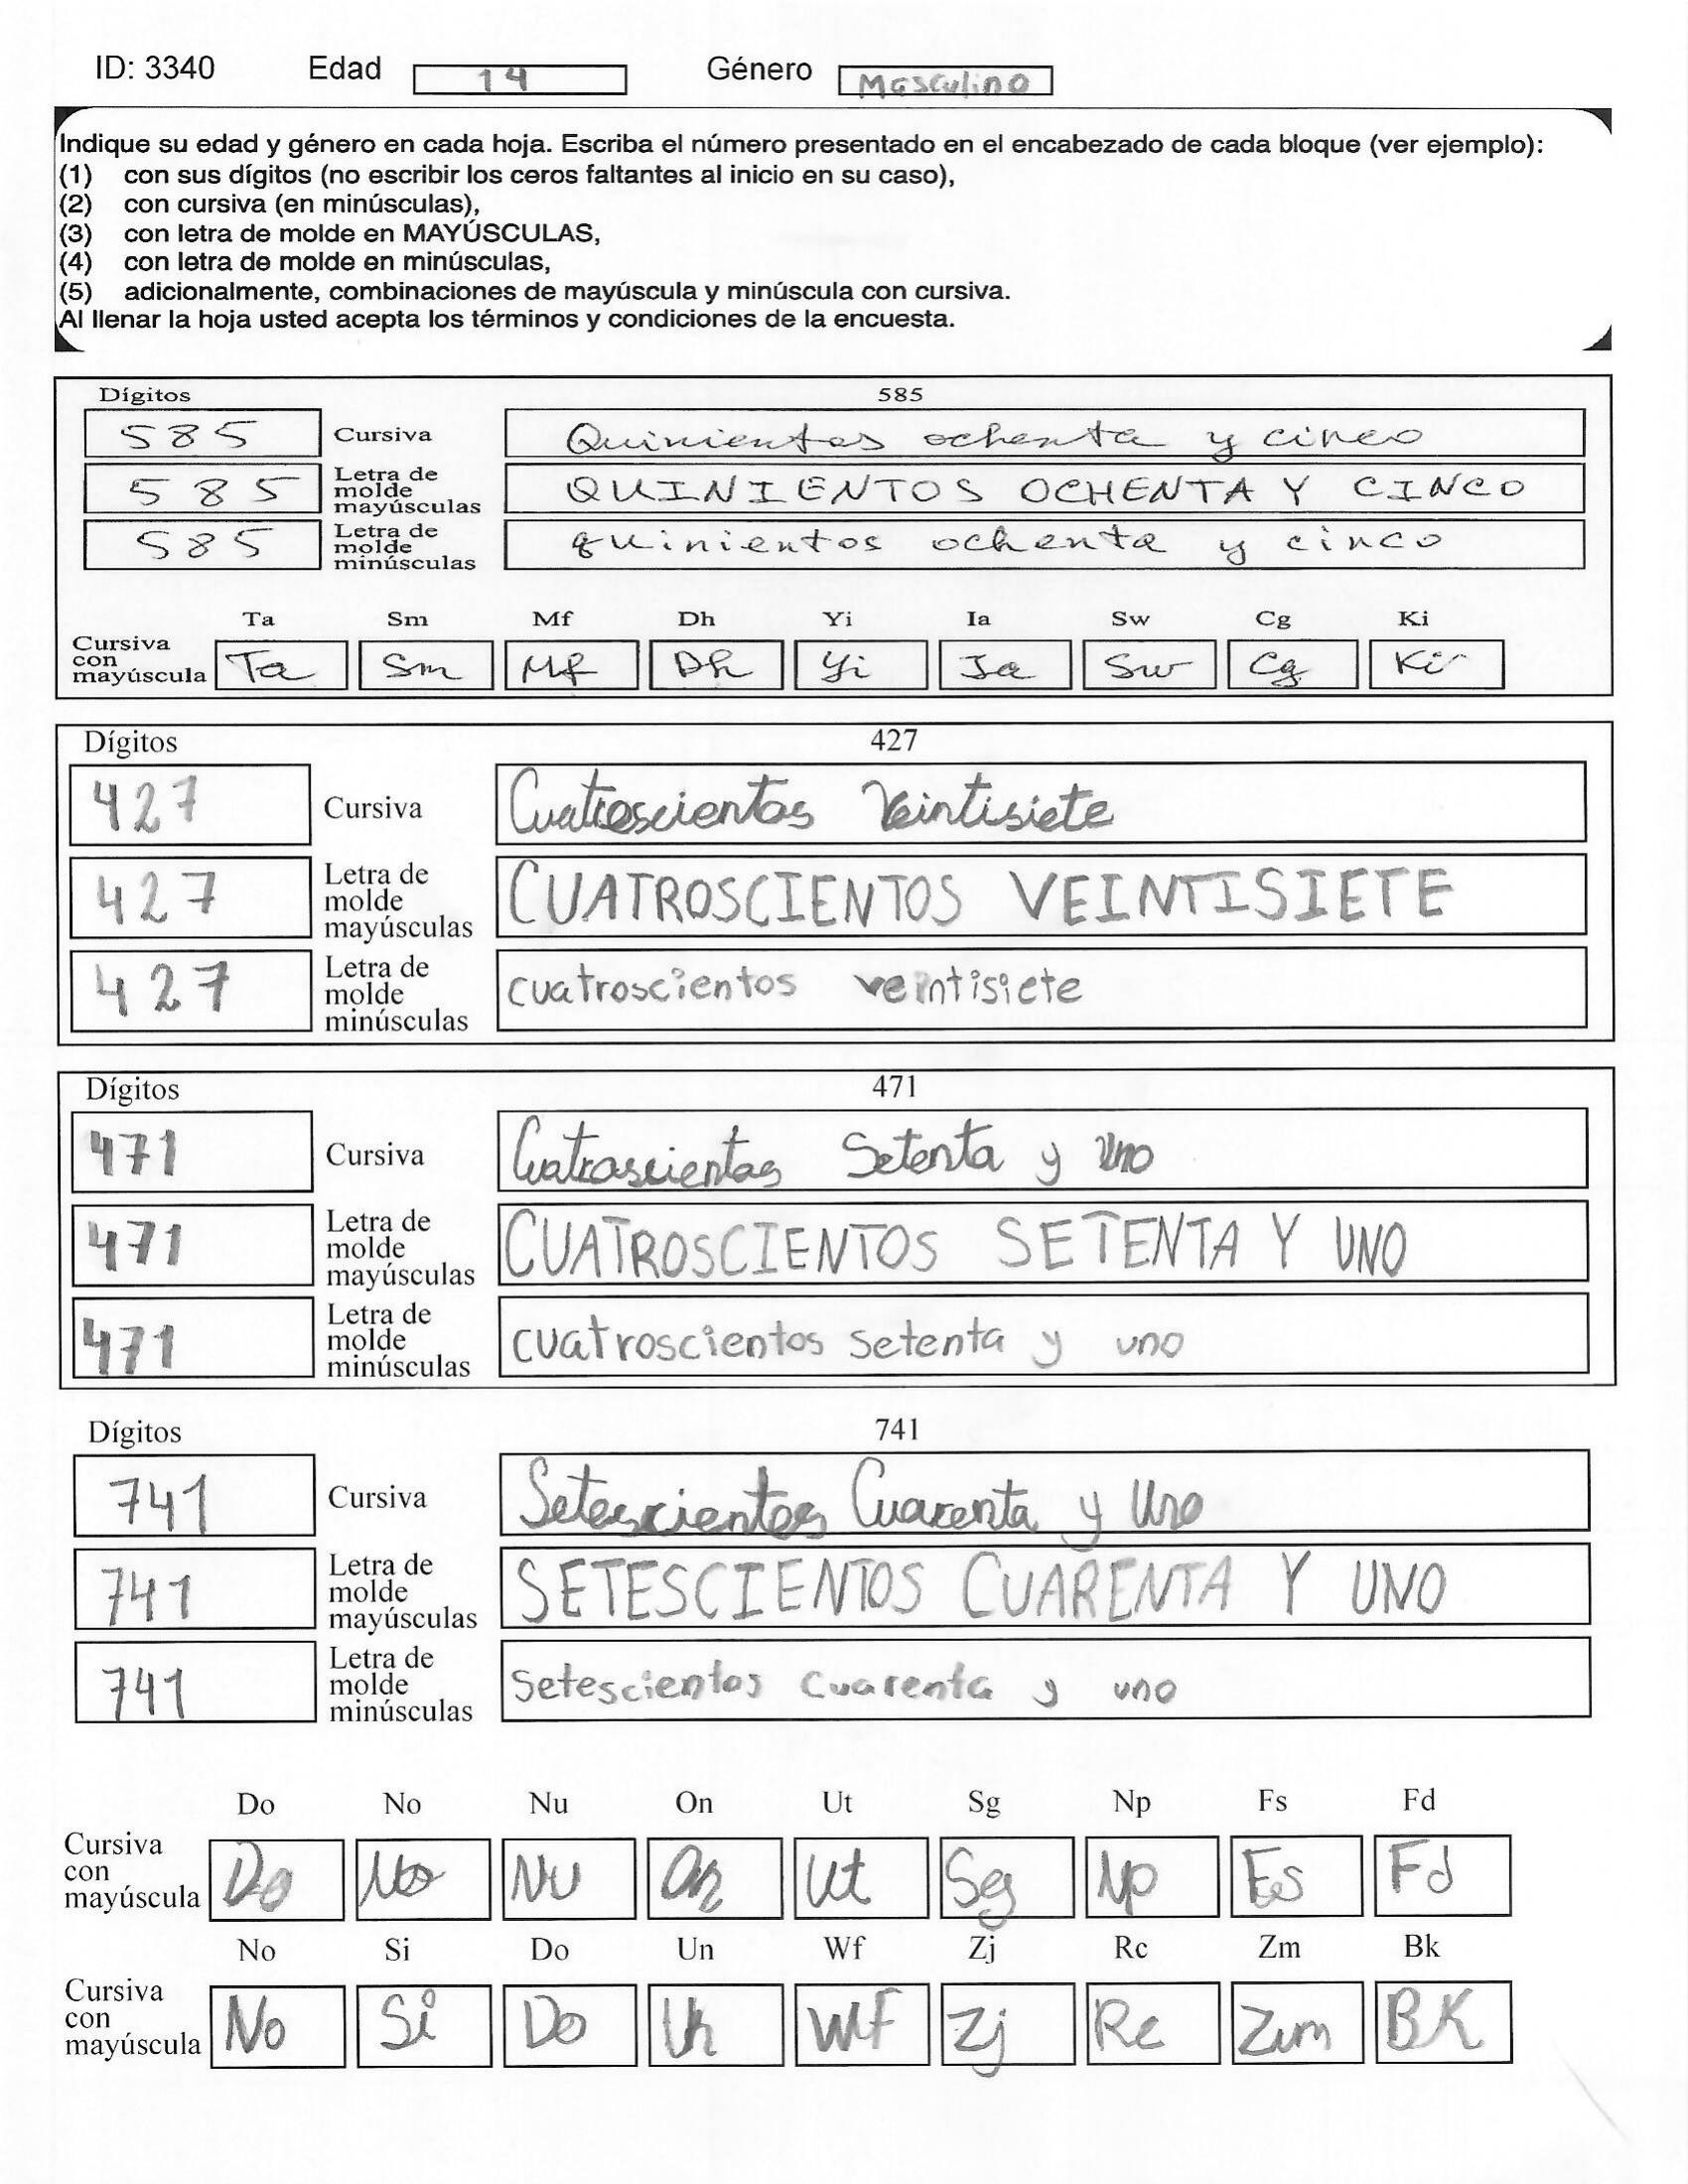 ID: 3340 Edad 14 Género Masculino
Indique su edad y género en cada hoja. Escriba el número presentado en el encabezado de cada bloque (ver ejemplo):
(1) con sus dígitos (no escribir los ceros faltantes al inicio en su caso),
(2) con cursiva (en minúsculas),
(3) con letra de molde en MAYÚSCULAS,
(4) con letra de molde en minúsculas,
(5) adicionalmente, combinaciones de mayúscula y minúscula con cursiva.
Al llenar la hoja usted acepta los términos y condiciones de la encuesta.
Dígitos 585
585 Cursiva Quinientos ochenta y cinco
585 Letra de molde mayúsculas QUINIENTOS OCHENTA Y CINCO
585 Letra de molde minúsculas quinientos ochenta y cinco
Ta Sm Mf Dh Yi Ia Sw Cg Ki
Cursiva con mayúscula Ta Sm Mf Dh Yi Ia Sw Cg Ki
Dígitos 427
427 Cursiva Cuatroscientos Veintisiete
427 Letra de molde mayúsculas CUATROSCIENTOS VEINTISIETE
427 Letra de molde minúsculas cuatroscientos veintisiete
Dígitos 471
471 Cursiva Cuatroscientos Setenta y Uno
471 Letra de molde mayúsculas CUATROSCIENTOS SETENTA Y UNO
471 Letra de molde minúsculas cuatroscientos setenta y uno
Dígitos 741
741 Cursiva Setescientos Cuarenta y Uno
741 Letra de molde mayúsculas SETESCIENTOS CUARENTA Y UNO
741 Letra de molde minúsculas Setescientos cuarenta y uno
Do No Nu On Ut Sg Np Fs Fd
Cursiva con mayúscula Do No Nu On Ut Sg Np Fs Fd
No Si Do Un Wf Zj Rc Zm Bk
Cursiva con mayúscula No Si Do Un Wf Zj Rc Zm BK